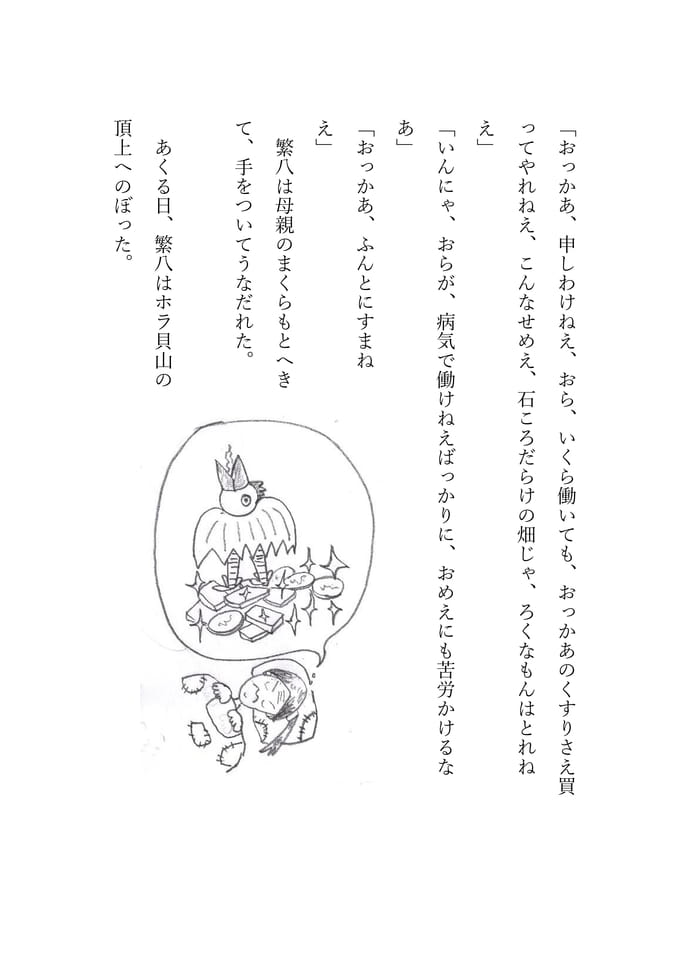 「おっかあ、申しわけねえ、おら、いくら働いても、おっかあのくすりさえ買
ってやれねえ、こんなせめえ、石ころだらけの畑じゃ、ろくなもんはとれね
え」
「いんにゃ、おらが、病気で働けねえばっかりに、おめえにも苦労かけるな
あ」
「おっかあ、ふんとにすまね
え」
　繁八は母親のまくらもとへき
て、手をついてうなだれた。
　あくる日、繁八はホラ貝山の
頂上へのぼった。